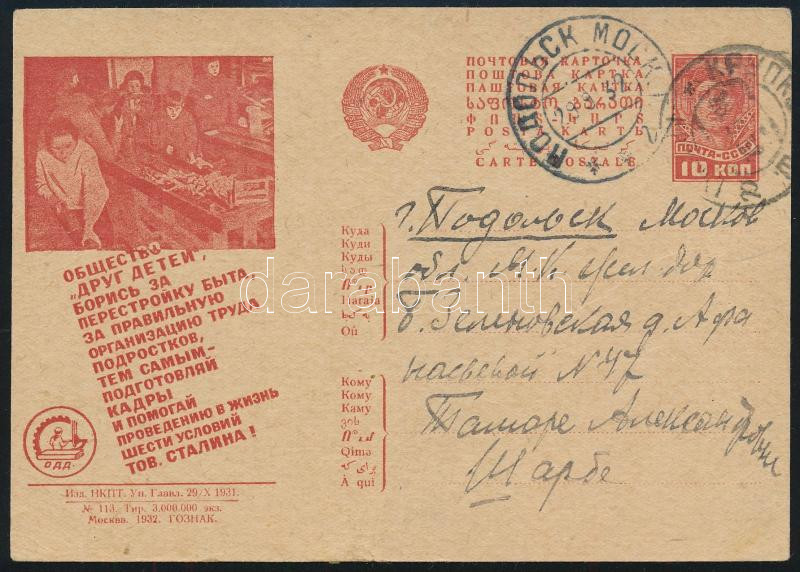 ОБЩЕСТВО
„ДРУГ ДЕТЕЙ",
БОРИСЬ ЗА
ПЕРЕСТРОЙКУ БЫТА,
ЗА ПРАВИЛЬНУЮ
ОРГАНИЗАЦИЮ ТРУДА
ПОДРОСТКОВ,
ТЕМ САМЫМ–
ПОДГОТОВЛЯЙ
КАДРЫ
И ПОМОГАЙ
ПРОВЕДЕНИЮ В ЖИЗНЬ
ШЕСТИ УСЛОВИЙ
ТОВ. СТАЛИНА!
О.Д.Д.
Изд. НКПТ. Уп. Главл. 29/X 1931.
№ 113. Тир. 3.000.000 экз.
Москва. 1932. ГОЗНАК.
ПОЧТОВАЯ КАРТОЧКА
ПОШТОВА КАРТКА
ПАШТОВАЯ КАРТКА
CARTE POSTALE
ПОДОЛЬСК МОСК.
29.8.32
ПОЧТА-СССР
10 КОП
Куда
Куди
Куды
Haraja
Où
Кому
Кому
Каму
Qimə
À qui
г. Подольск Москов
обл. М.К. жел дор
д. Афа
наевской № 47
Тамаре Александровне
Шарбе
darabanth